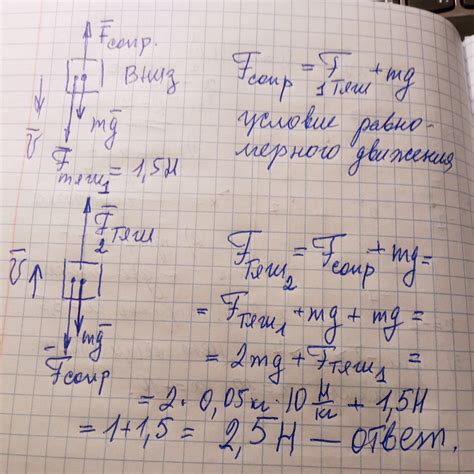 F̄сопр.
вниз
v̄
mḡ
F̄тяш₁ = 1,5Н
Fсопр = F1тяш + mg
условие равно-
мерного движения
F̄2тяш
v̄
mḡ
F̄сопр
Fтяш₂ = Fсопр + mg =
= Fтяш₁ + mg + mg =
= 2mg + Fтяш₁ =
= 2 · 0,05кг · 10 Н/кг + 1,5Н
= 1+1,5 = 2,5Н — ответ.